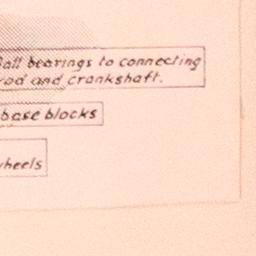 Ball bearings to connecting
rod and crankshaft.
base blocks
wheels